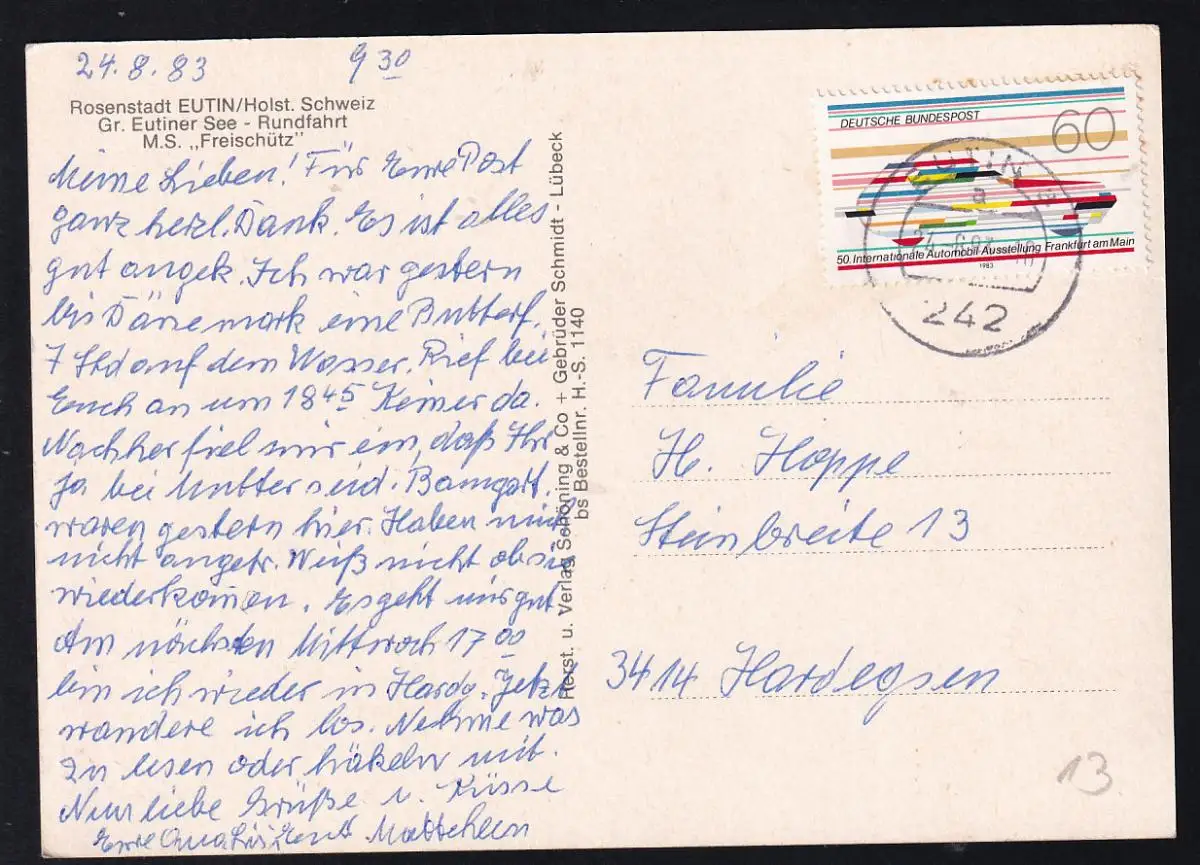 24.8.83 9 30
Rosenstadt EUTIN/Holst. Schweiz
Gr. Eutiner See - Rundfahrt
M.S. „Freischütz"
Meine Lieben! Für Eure Post
ganz herzl. Dank. Es ist alles
gut angek. Ich war gestern
bis Dänemark eine Butterf.
7 Std auf dem Wasser. Rief bei
Euch an um 18 45 Keiner da.
Nachher fiel mir ein, daß Ihr
ja bei Mutter seid. Baumgart.
waren gestern hier. Haben mich
nicht angetr. Weiß nicht ob sie
wiederkommen. Es geht mir gut
Am nächsten Mittwoch 17 00
bin ich wieder in Hardg. Jetzt
wandere ich los. Nehme was
zu lesen oder häkeln mit.
Nun liebe Grüße u. Küsse
Eure Oma
Herst. u. Verlag Schöning & Co + Gebrüder Schmidt - Lübeck
bs Bestellnr. H.-S. 1140
DEUTSCHE BUNDESPOST
60
50. Internationale Automobil-Ausstellung Frankfurt am Main
1983
EUTIN
a
242
Familie
H. Hoppe
Steinbreite 13
3414 Hardegsen
13